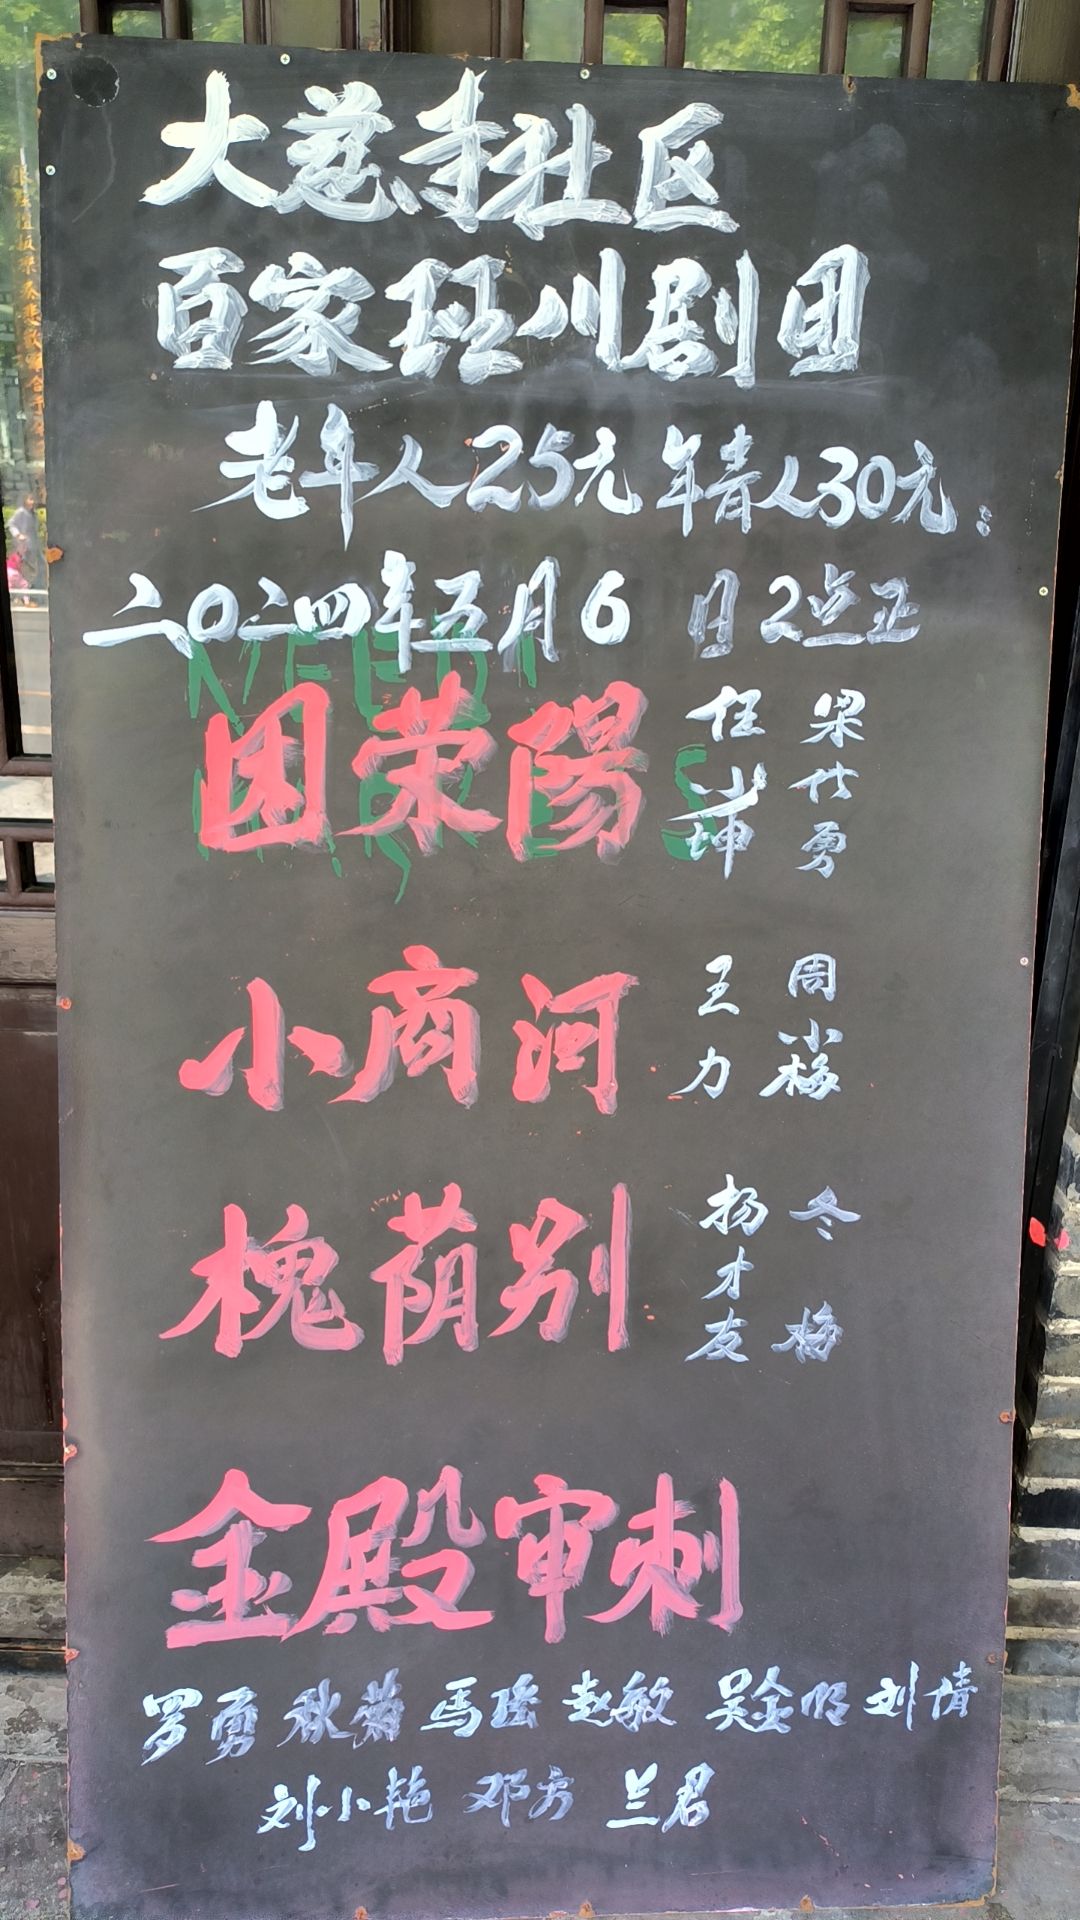 大慈寺社区
百家班川剧团
老年人25元 年青人30元:
二0二四年五月6日2点正
困荣陽 任小坤 梁仕勇
小商河 王力 周小梅
槐荫别 扬才友 冬梅
金殿审刺
罗勇 秋菊 馬瑶 赵敏 吴金明 刘情
刘小艳 邓方 兰君